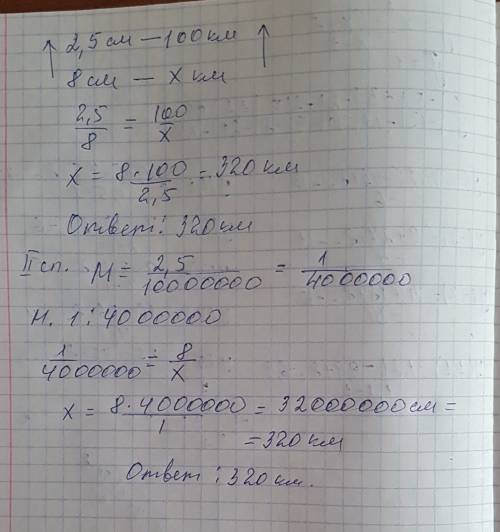 2,5 см — 100 км
8 см — х км
2,5/8 = 100/х
х = 8·100/2,5 = 320 км
Ответ: 320 км
II сп. М = 2,5/10000000 = 1/4000000
М. 1:4000000
1/4000000 = 8/х
х = 8·4000000/1 = 32000000 см =
= 320 км
Ответ: 320 км.